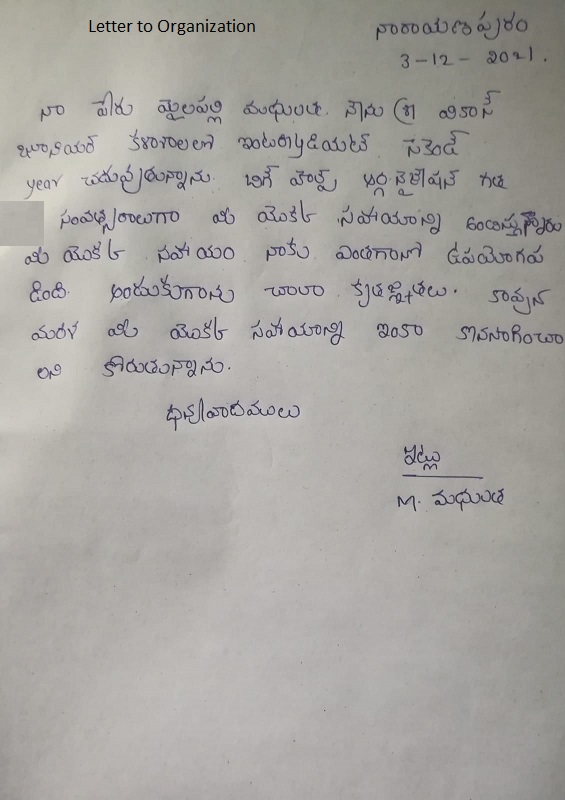 Letter to Organization
నారాయణపురం
3-12-2021.
నా పేరు మైలపల్లి మధులత. నేను శ్రీ వికాస్
జూనియర్ కళాశాలలో ఇంటర్మీడియట్ సెకండ్
year చదువుతున్నాను. బిగ్ హెల్ప్ ఆర్గనైజేషన్ గత
సంవత్సరాలుగా మీ యొక్క సహాయాన్ని అందిస్తున్నారు
మీ యొక్క సహాయం నాకు ఎంతగానో ఉపయోగప
డింది. అందుకుగాను చాలా కృతజ్ఞతలు. కావున
మరల మీ యొక్క సహాయాన్ని ఇంకా కొనసాగించా
లని కోరుతున్నాను.
ధన్యవాదములు
ఇట్లు
M. మధులత